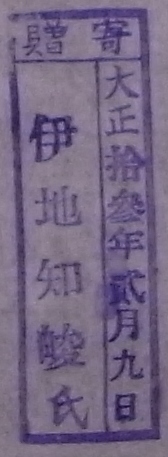 寄贈
大正拾叄年貳月九日
伊地知峻氏